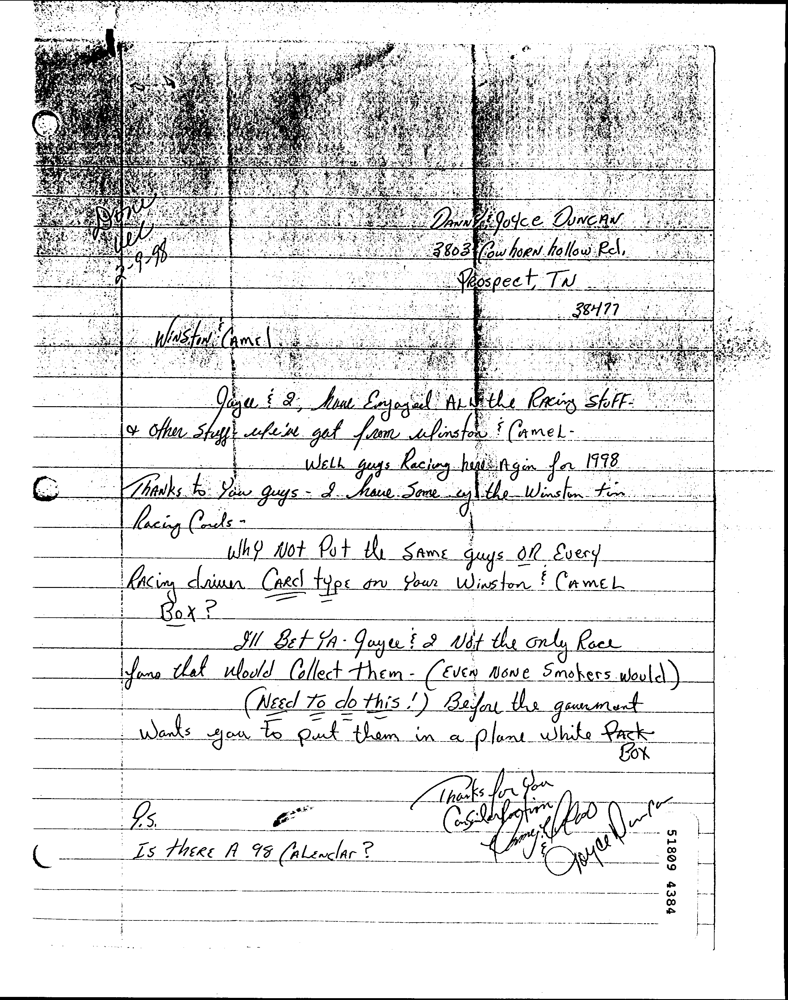 Done
2-9-98
Danny & Joyce Duncan
3803 Cowhorn hollow Rd,
Prospect, TN
38477
Winston & Camel
Joyce & I, have Enjoyed ALL the Racing Stuff-
& other Stuff we've got from Winston & Camel-
Well guys Racing here Agin for 1998
Thanks to You guys - I have Some of the Winston tin
Racing Cards-
Why Not Put the Same guys OR Every
Racing driver Card type on Your Winston & Camel
Box?
I'll Bet Ya- Joyce & I Not the only Race
fans that Would Collect Them- (Even None Smokers Would)
(Need To do this!) Before the gouerment
Wants you to put them in a plane white Pack
Box
Thanks for You
Danny
&
Joyce Duncan
P.S.
Is there A 98 Calendar?
51809 4384